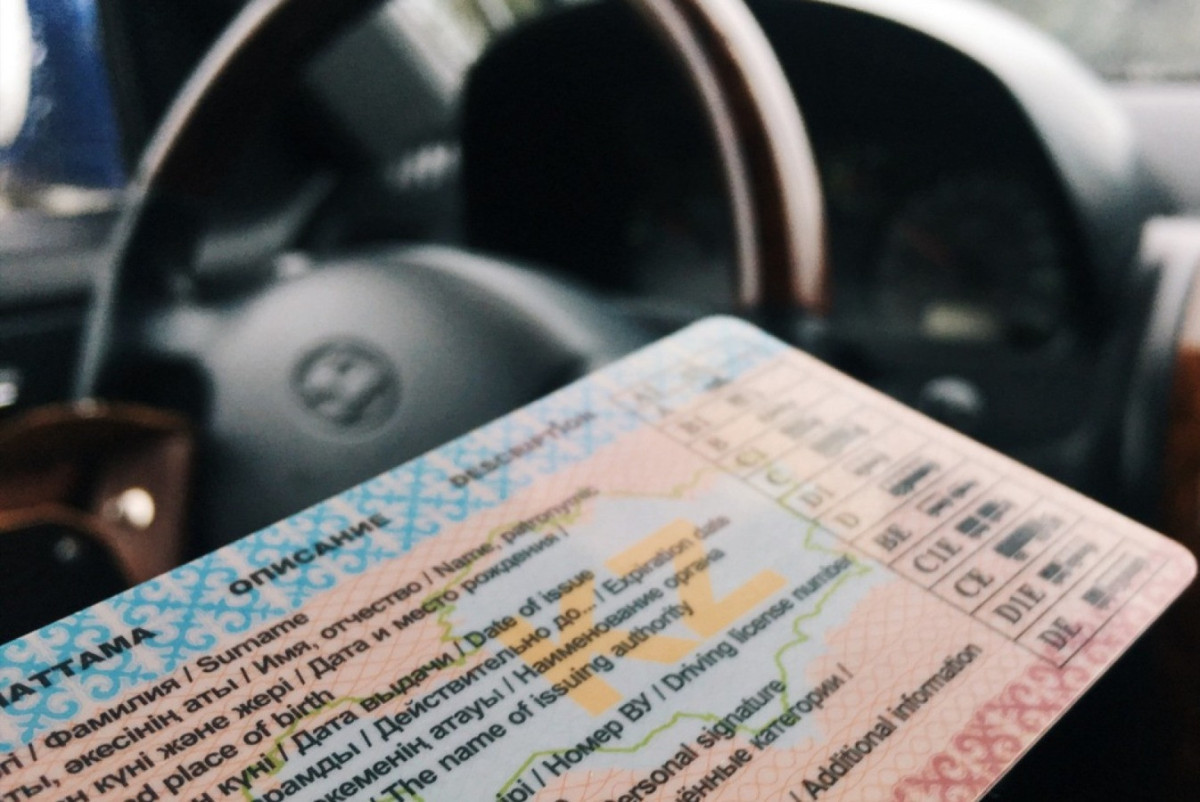 АТТАМА ОПИСАНИЕ DESCRIPTION
/ Фамилия / Surname
ты, әкесінің аты / Имя, отчество / Name, patronymic
күні және жері / Дата и место рождения /
d place of birth
күні / Дата выдачи / Date of issue
рамды / Действительно до... / Expiration date
кеменің атауы / Наименование органа
/ The name of issuing authority
ірі / Номер ВУ / Driving license number
Personal signature
ённые категории /
/ Additional information
KZ
B1
B
C1
C
D1
D
BE
C1E
CE
D1E
DE